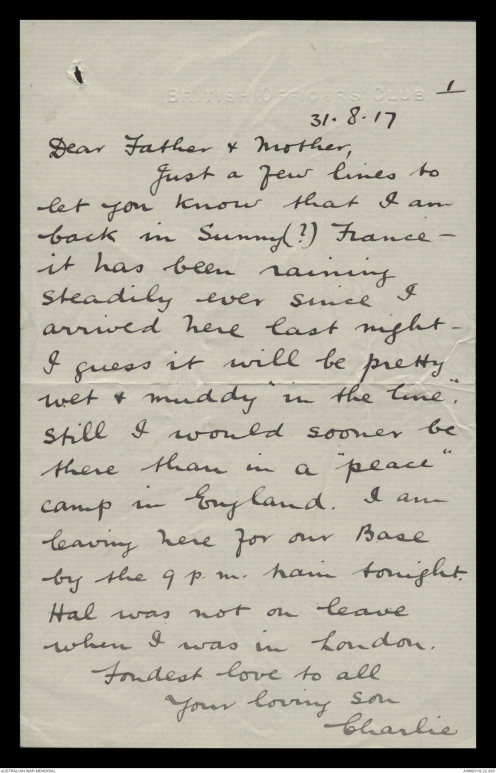 BRITISH OFFICERS CLUB
1
31.8.17
Dear Father & Mother,
Just a few lines to
let you know that I am
back in Sunny(?) France –
it has been raining
steadily ever since I
arrived here last night –
I guess it will be pretty
wet & muddy "in the line".
Still I would sooner be
there than in a "peace"
camp in England. I am
leaving here for our Base
by the 9 p.m. train tonight.
Hal was not on leave
when I was in London.
Fondest love to all
Your loving son
Charlie
AUSTRALIAN WAR MEMORIAL